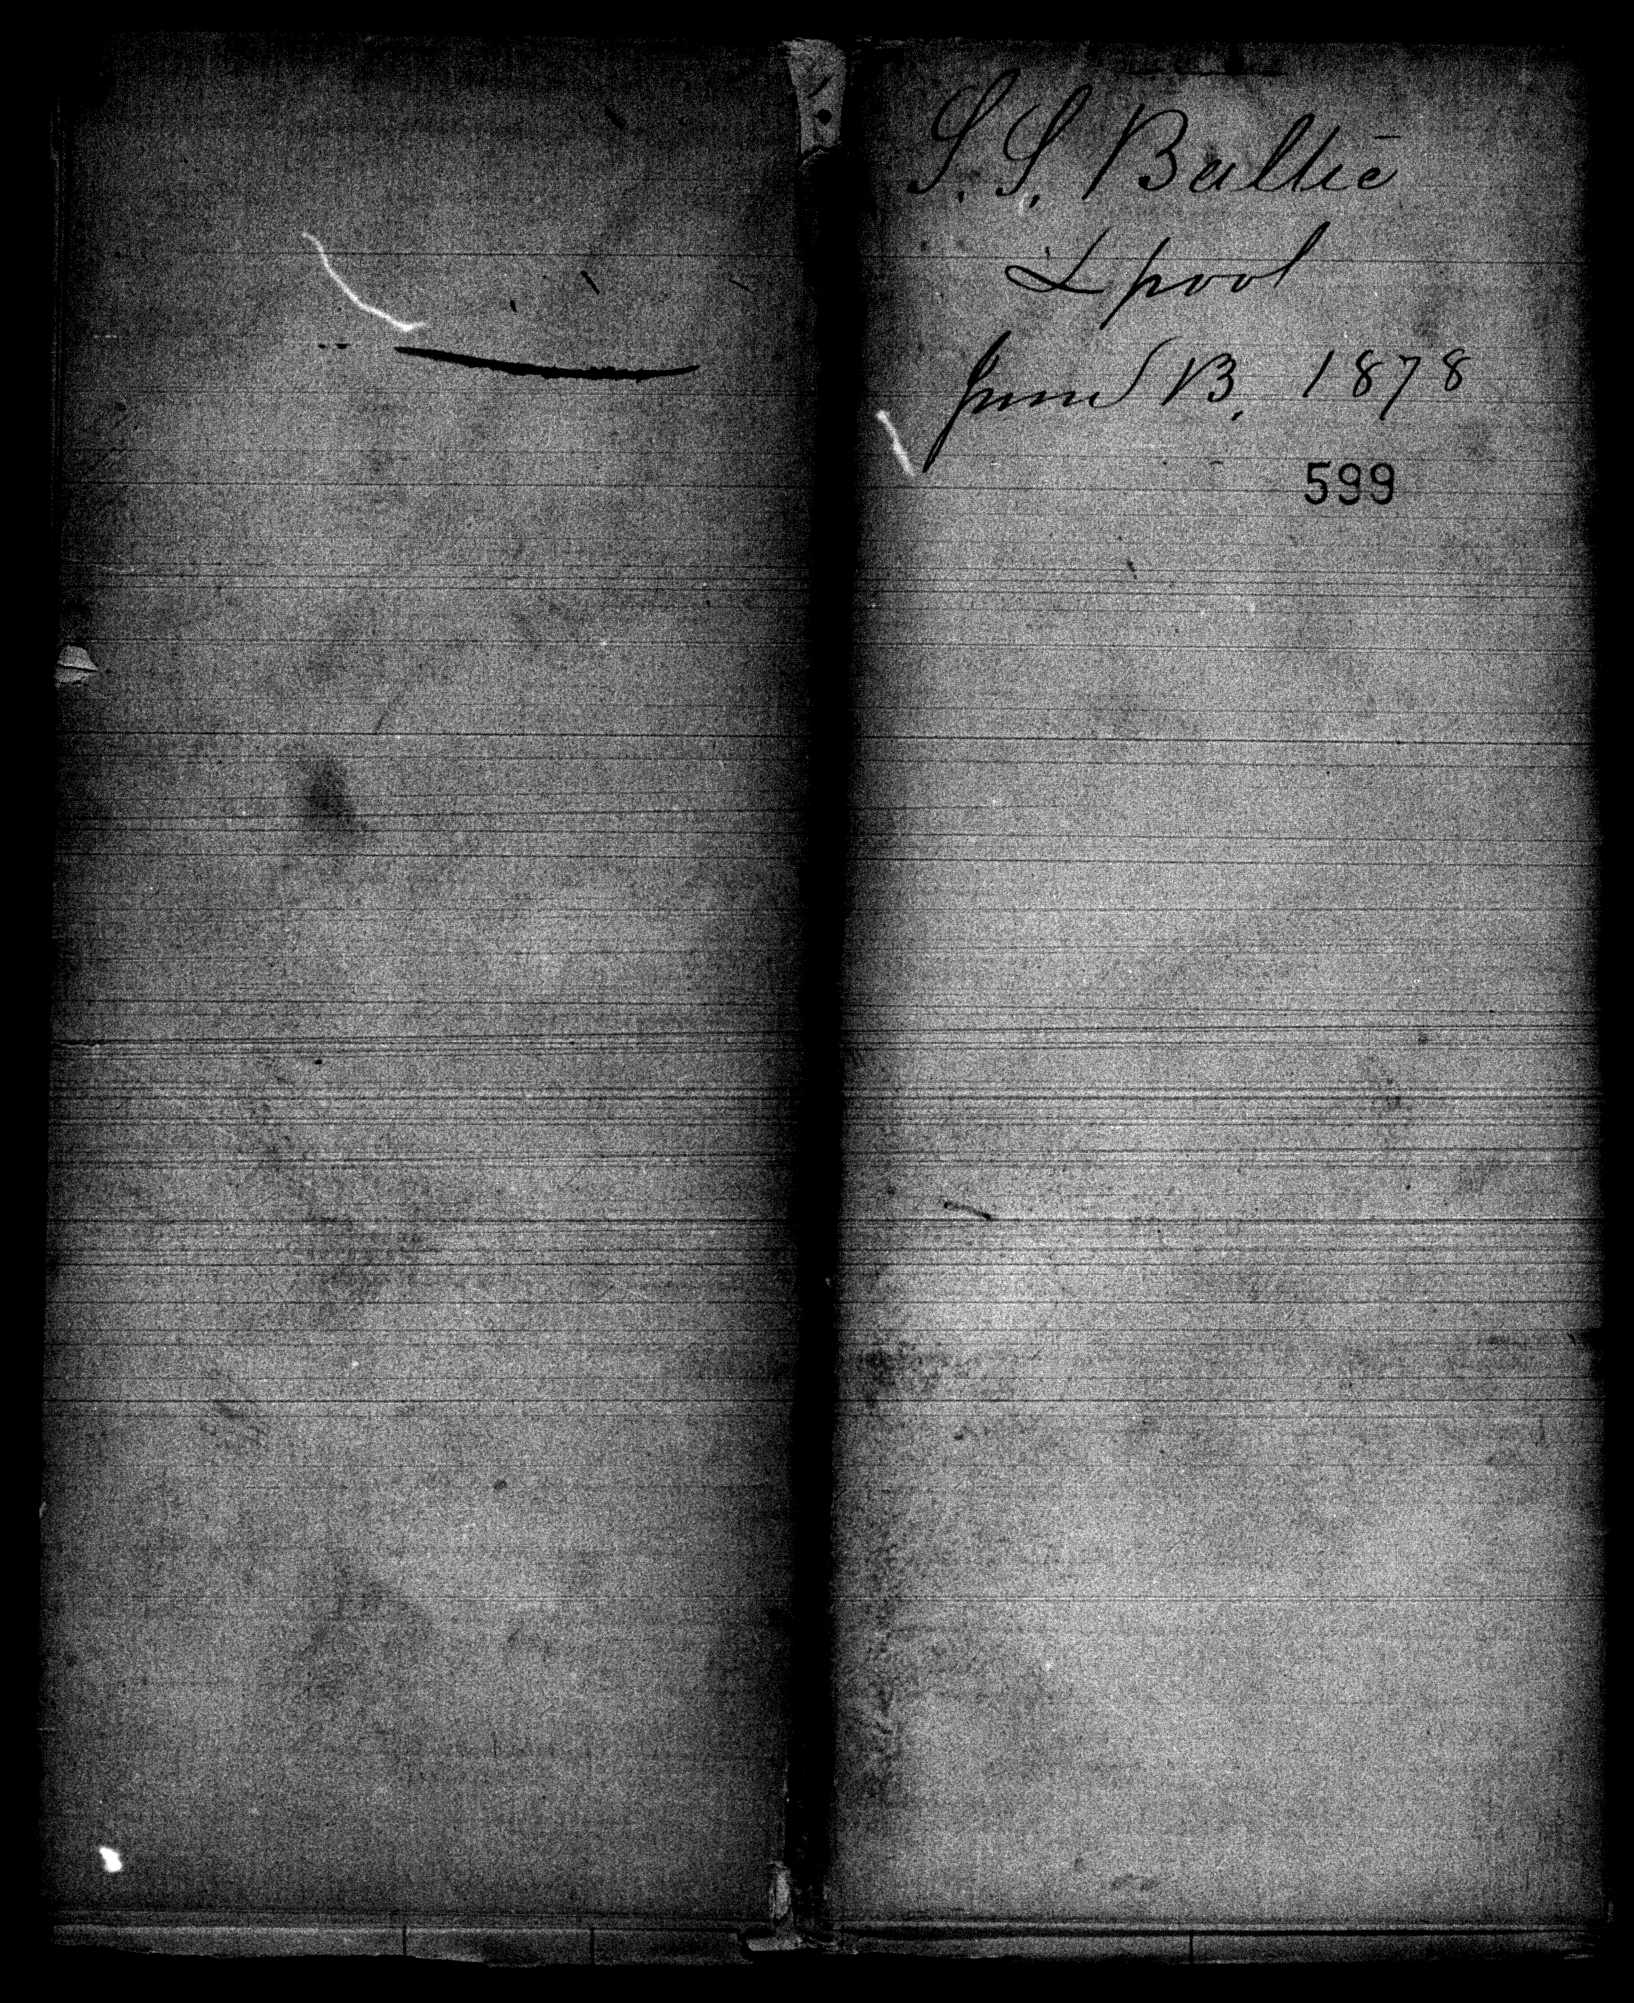 S. S. Baltic
L pool
June 13, 1878
599